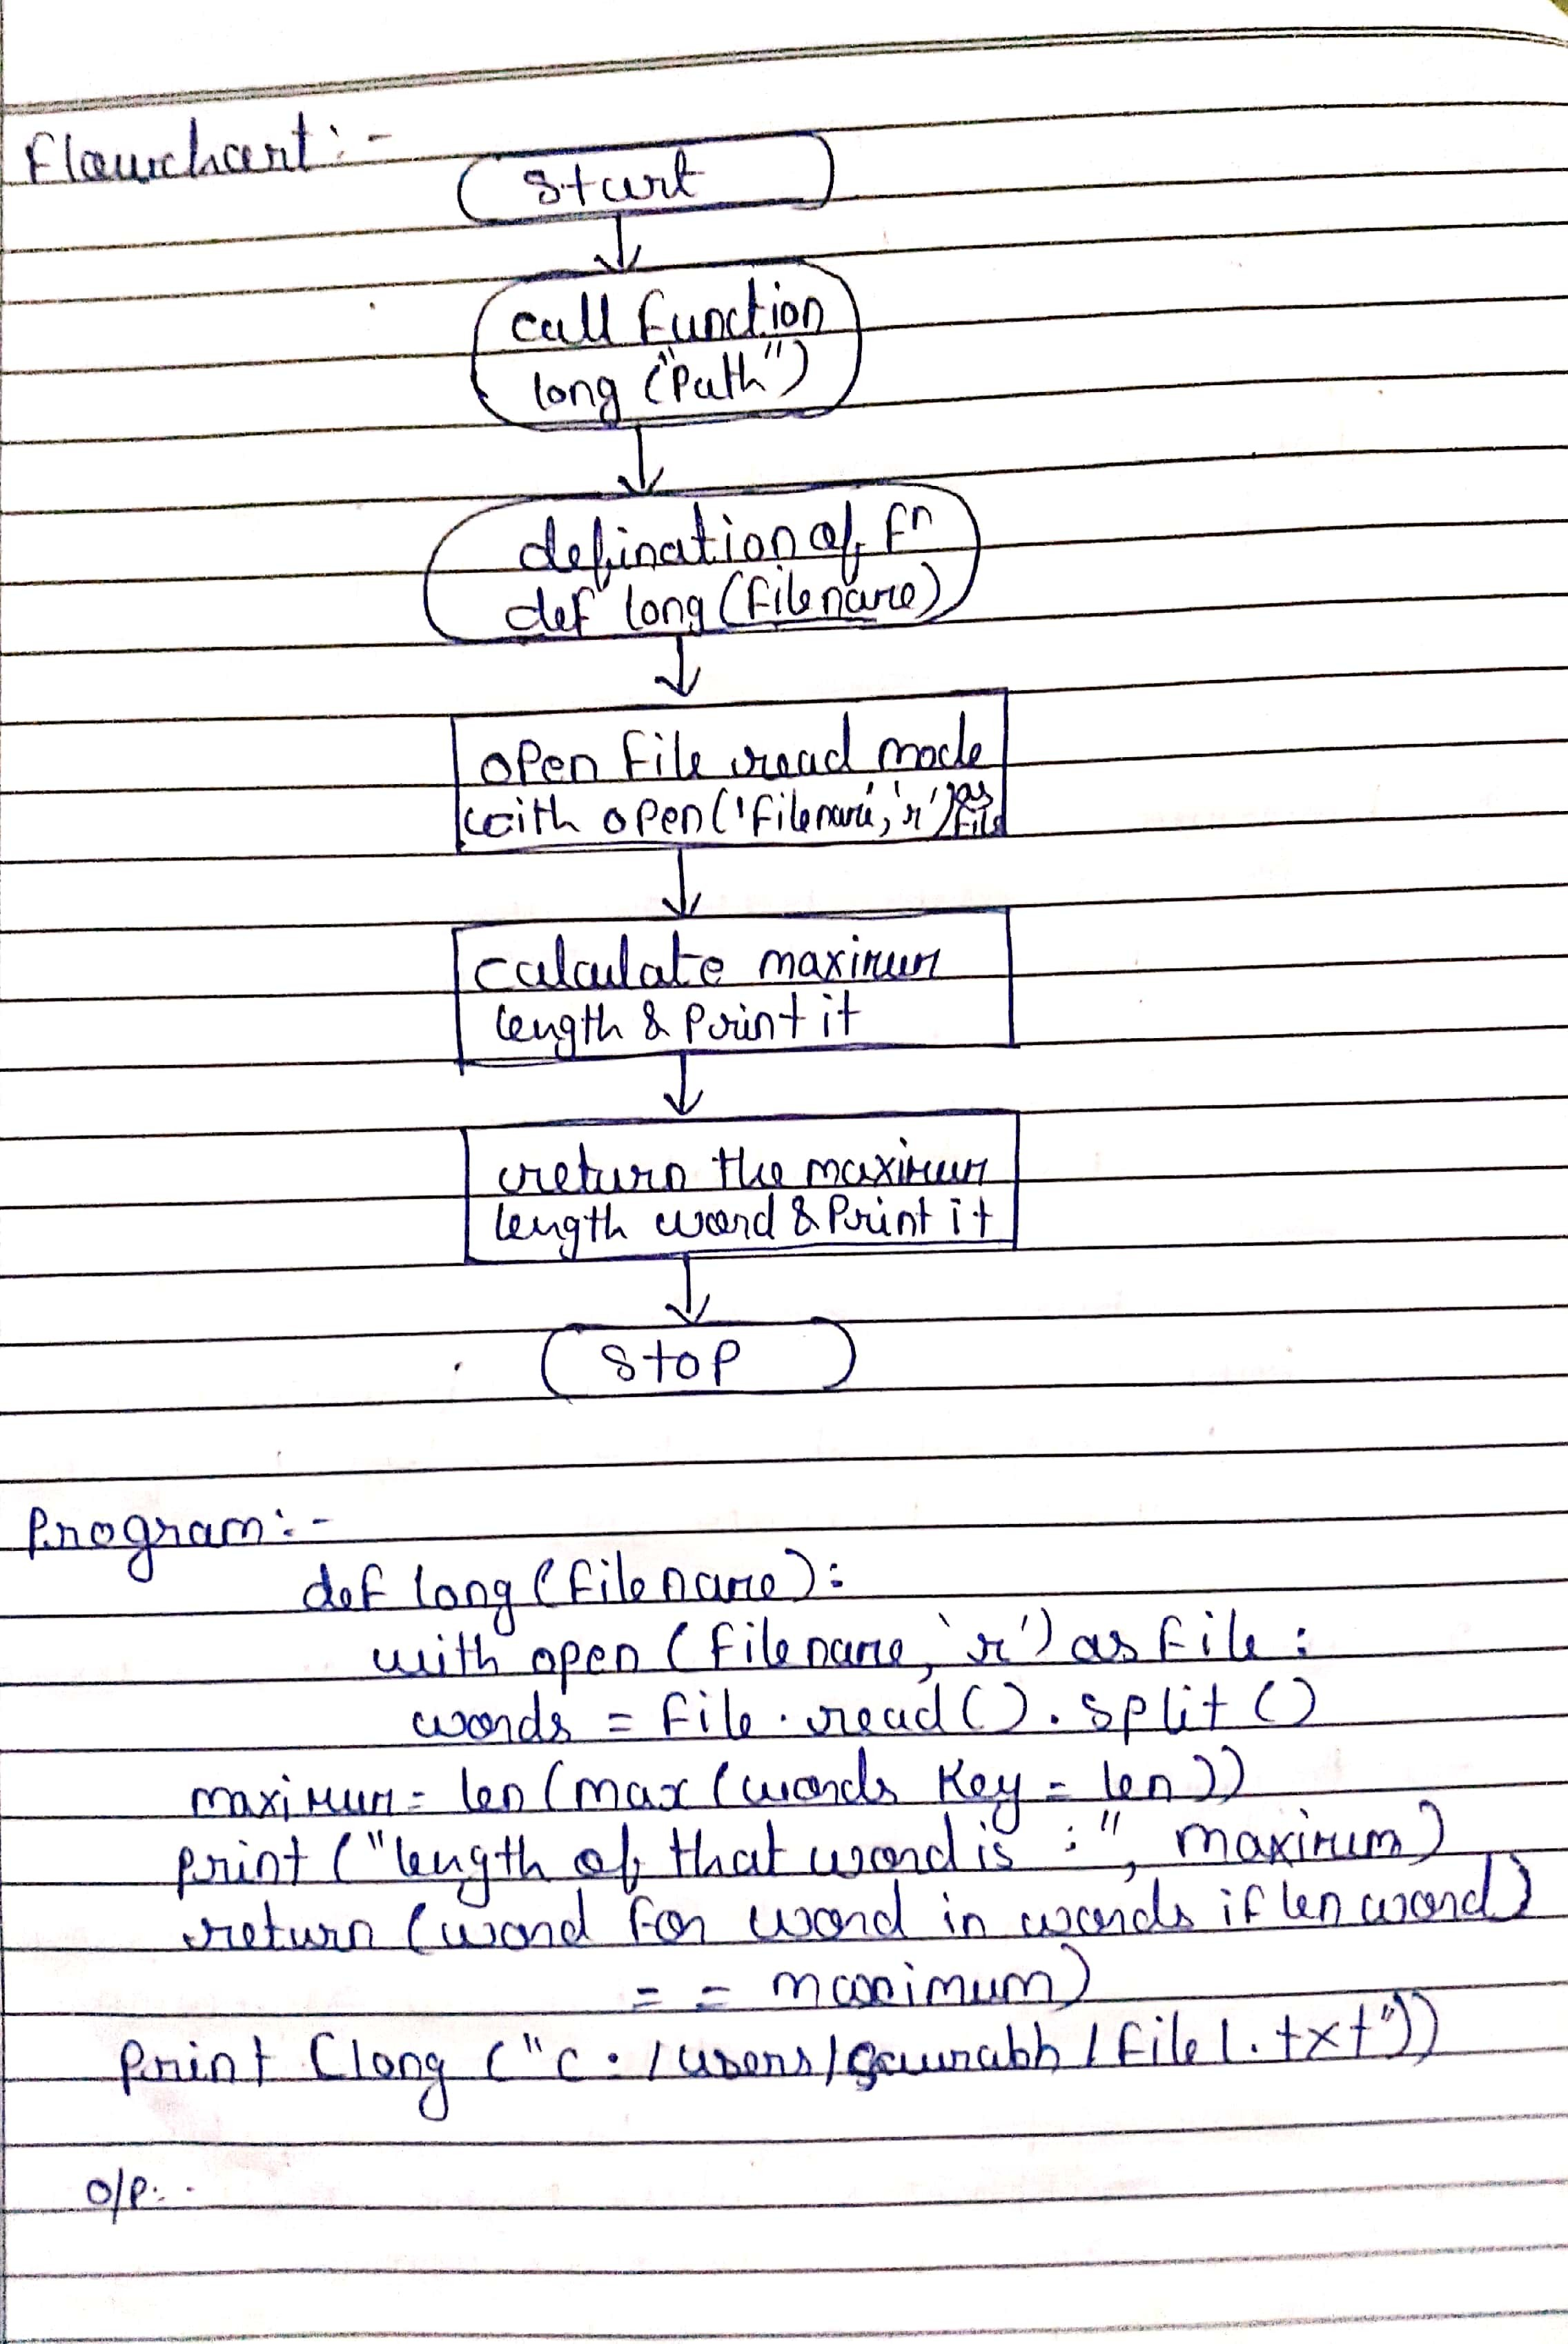 Flowchart :-
Start
call function
long ("Path")
defination of fn
def long (filename)
open file read mode
with open('filename', 'r') as file
calculate maximum
length & Print it
return the maximum
length word & Print it
Stop
Program :-
def long (filename):
with open (filename, 'r') as file :
words = file.read().split()
maximum = len (max (words Key = len))
print ("length of that word is :", maximum)
return (word for word in words if len word)
= = maximum)
Print (long ("c:/users/gaurabh/file1.txt"))
O/P:-